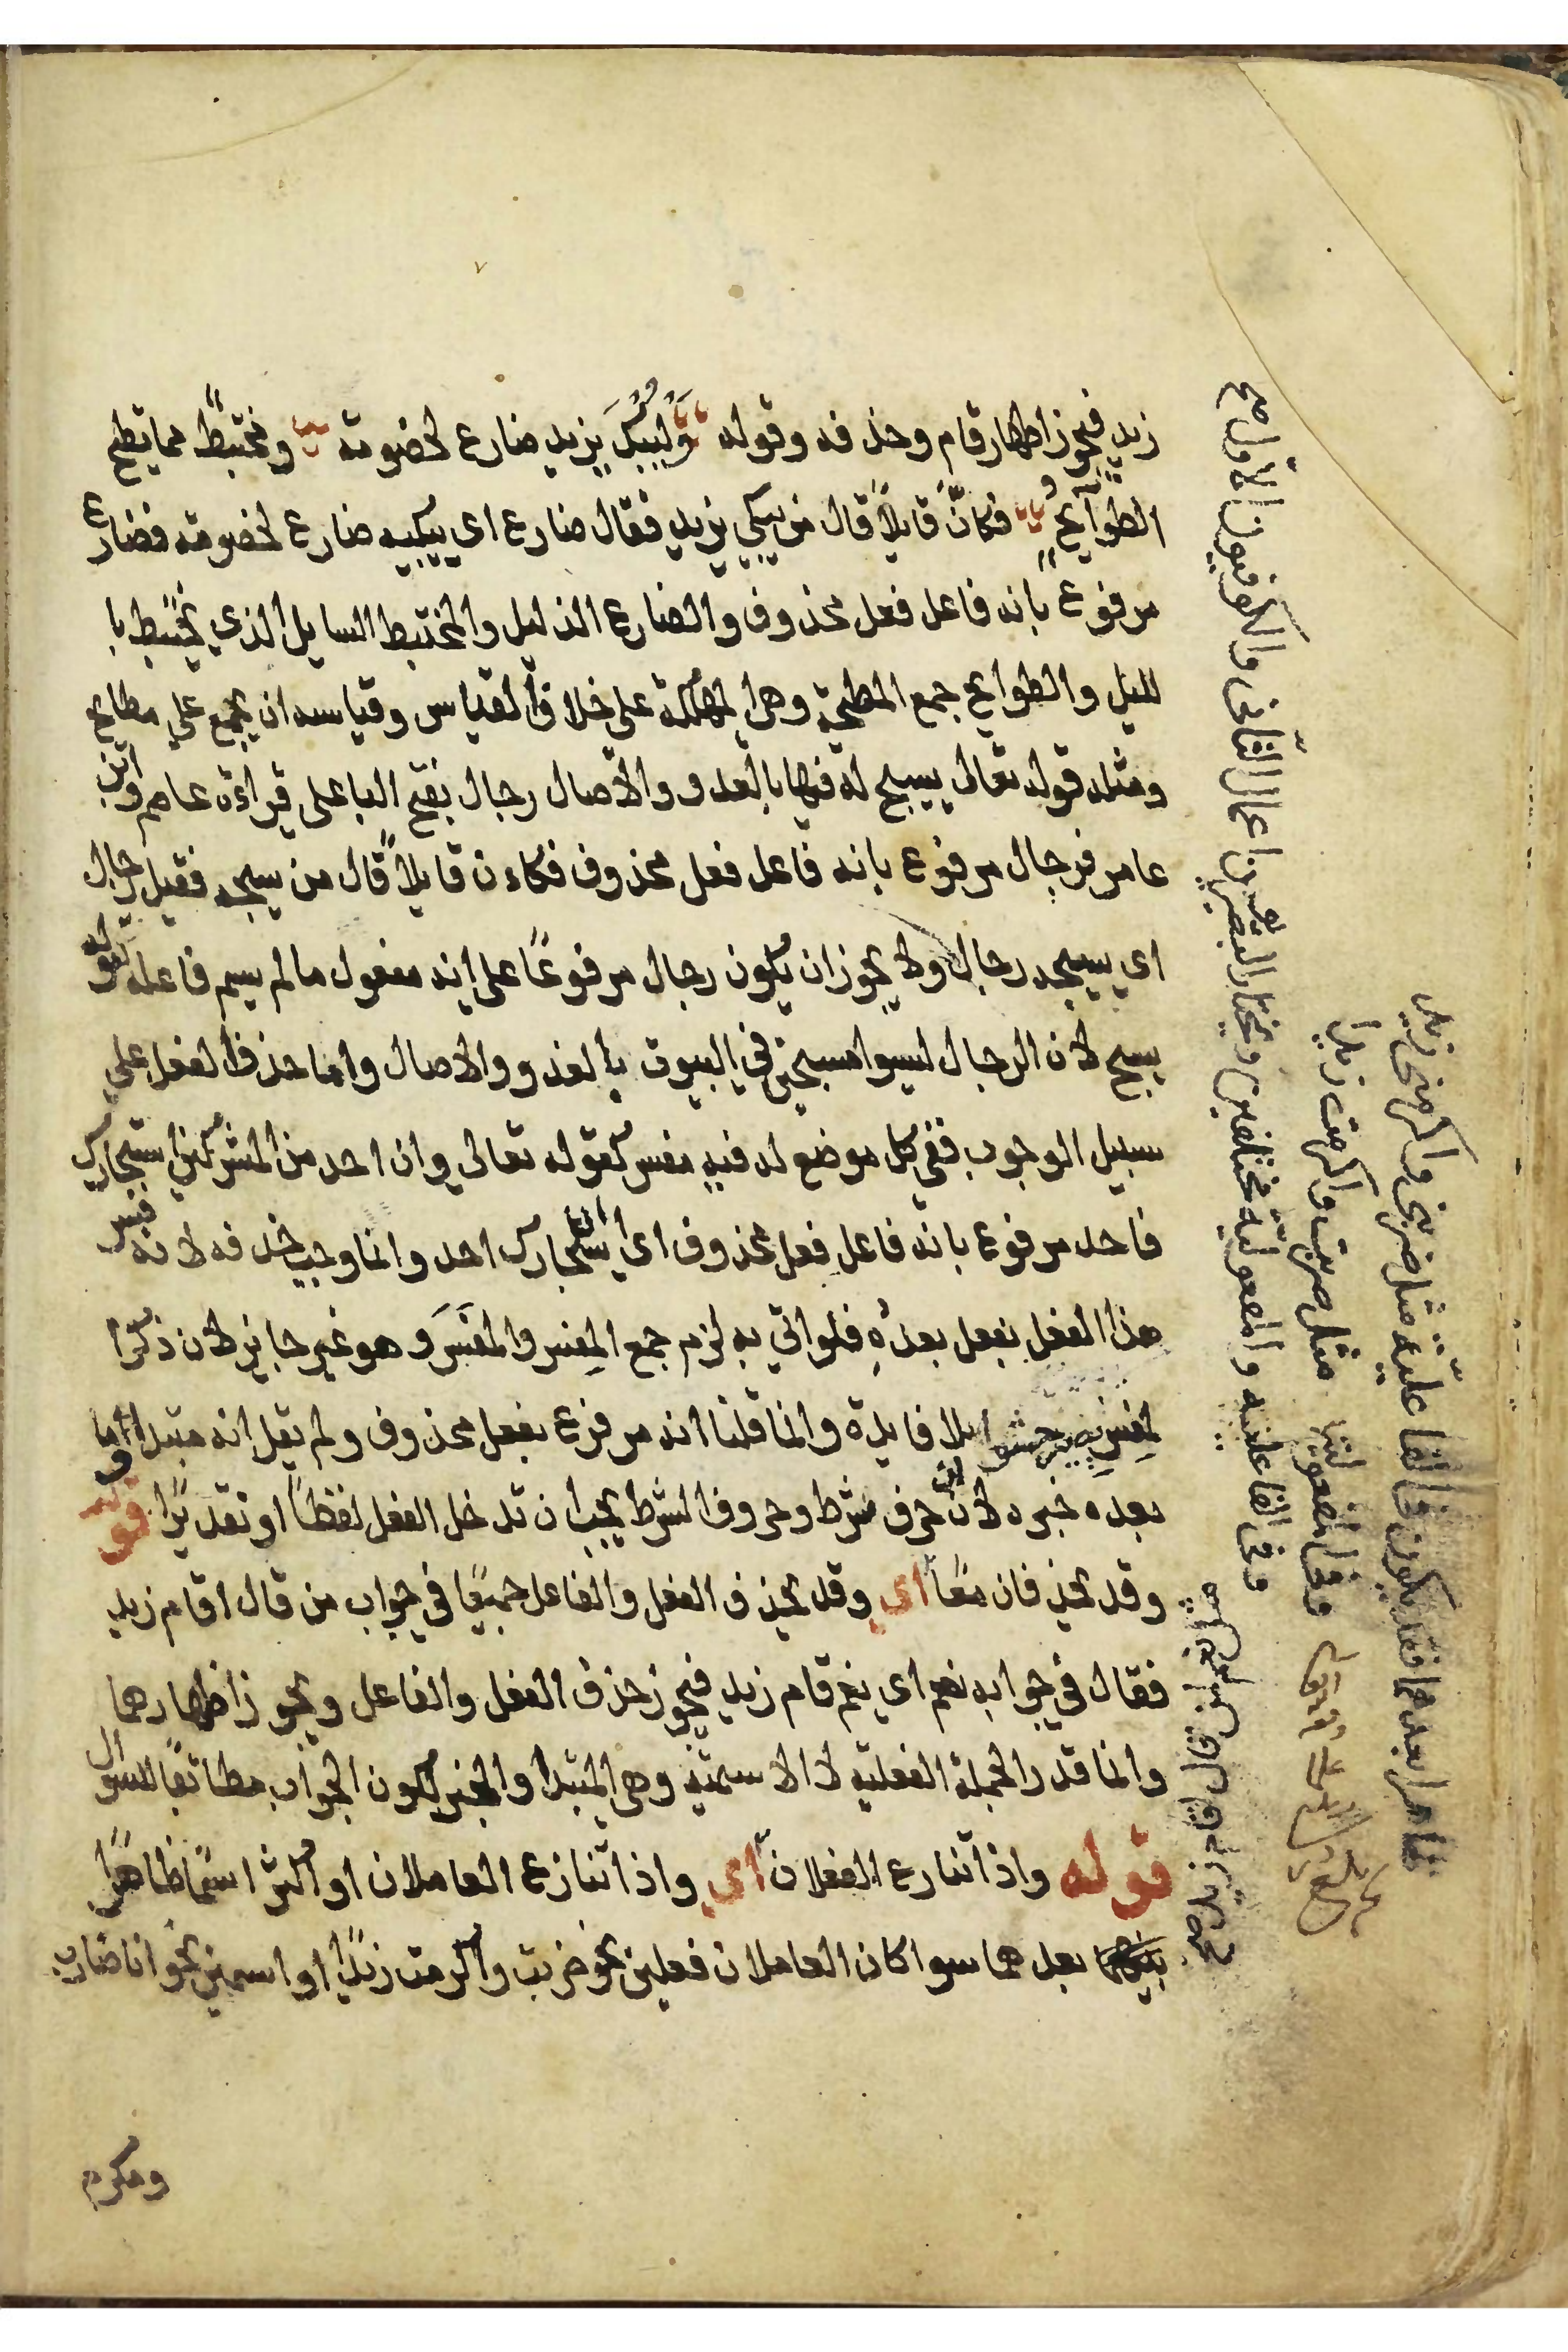 زيد فيجوز اظهار قام وحذفه وقوله وَلْيُبْكَ يزيد ضارع لخصومة ومختبطٌ مما تطيح
الطوايحُ فكانّ قايلاً قال من يبكي يزيد فقال ضارع اي يبكيه ضارع لخصومة فضارع
مرفوع بانه فاعل فعل محذوف والضارع الذليل والمختبط السايل الذي يختبط با
لليل والطوايح جمع المطيحة وهي المهلكة على خلاف القياس وقياسه ان يجمع علي مطايح
ومثله قوله تعالى يسبح له فيها بالغدو والاصال رجال بفتح البا على قراءة عاصم وابن
عامر فرجال مرفوع بانه فاعل فعل محذوف فكاءن قايلاً قال من يسبحه فقيل رجال
اي يسبحه رجال ولا يجوز ان يكون رجال مرفوعًا على انه مفعول ما لم يسم فاعله لقوله
يسبح لان الرجال ليسوا مسبحين في البيوت بالغدو والاصال واما حذف الفعل علي
سبيل الوجوب ففي كل موضع له فيه مفسر كقوله تعالى وان احد من المشركين استجارك
فاحد مرفوع بانه فاعل فعل محذوف اي استجارك احد وانما وجب حذفه لانه فسر
هذا الفعل بفعل بعده فلو اتي به لزم جمع المفسر والمفسَر وهو غير جايز لان ذكر ا
لمفسر يصير حشوا بلا فايدة وانما قلنا انه مرفوع بفعل محذوف ولم يقل انه مبتدا وما
بعده خبره لان ان حرف شرط وحروف الشرط يجب ان تدخل الفعل لفظاً او تقديرًا قوله
وقد يحذفان معًا اي وقد يحذف الفعل والفاعل جميعًا في جواب من قال اقام زيد
فقال في جوابه نعم اي نعم قام زيد فيجوز حذف الفعل والفاعل ويجوز اظهارهما
وانما قدر الجملة الفعلية لا الاسمية وهي المبتدا والخبر لكون الجواب مطابقًا للسوال
قوله واذا تنازع الفعلان اي واذا تنازع العاملان او اكثر اسمًا ظاهرًا
بعدهما سوا كان العاملان فعلين نحو ضربت واكرمت زيدًا او اسمين نحو انا ضارب
ومكرم
ظاهرا بعدهما فقد يكون في الفاعلية مثل ضربني واكرمني زيد
وفي المفعولية مثل ضربت واكرمت زيدا
وفي الفاعلية والمفعولية مختلفين ويختار البصريون اعمال الثاني والكوفيون الاول صح
مثل نعم لمن قال اقام زيد صح